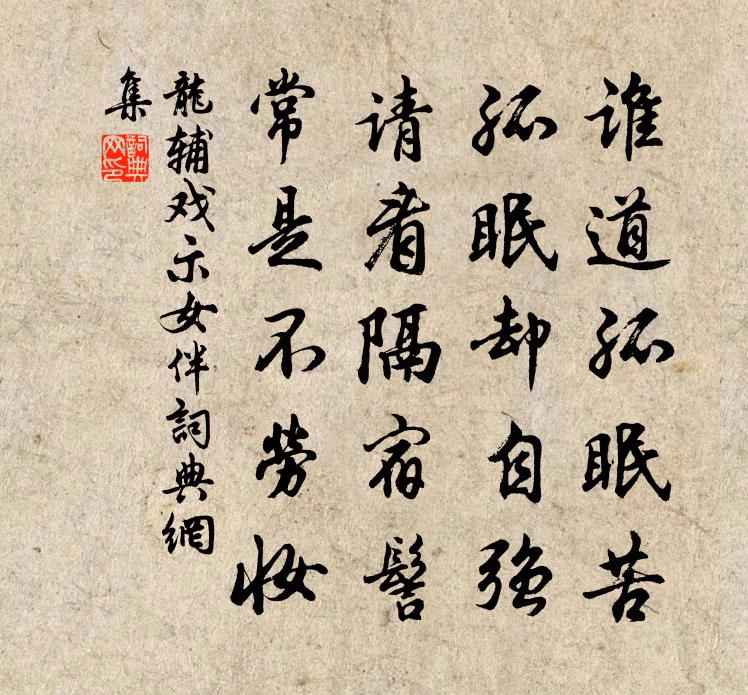 谁道孤眠苦
孤眠却自强
请看隔宿髻
常是不劳妆
龍辅戏示女伴詞典網
集
詞典
网印